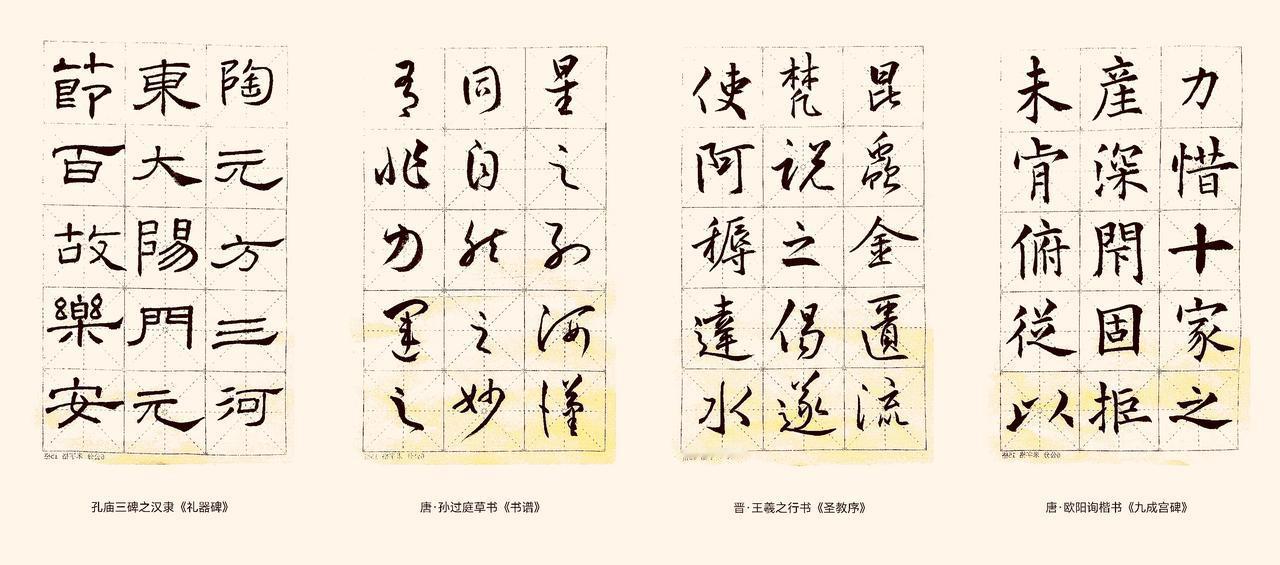 陶元方三河
東大陽門元
節百故樂安
孔庙三碑之汉隶《礼器碑》
星之列河漢
同自然之妙
有非力運之
唐·孙过庭草书《书谱》
昆蠡金匱流
梵説之偈遂
使阿耨達水
晋·王羲之行书《圣教序》
力惜十家之
産深閇固拒
未肯俯從以
唐·欧阳询楷书《九成宫碑》